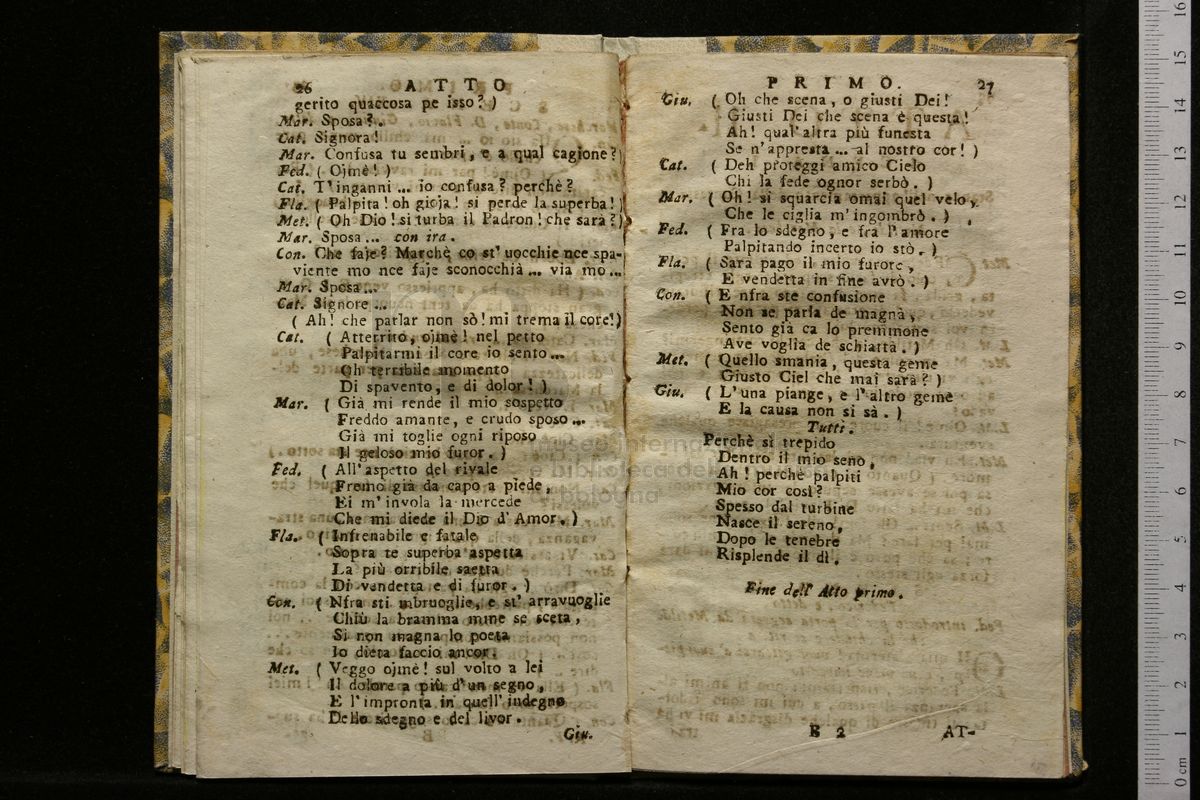 26 A T T O
gerito quaccosa pe isso? )
Mar. Sposa?.
Cat. Signora!
Mar. Confusa tu sembri, e a qual cagione?)
Fed. ( Ojmè! )
Cat. T'inganni ... io confusa? perchè?
Fla. ( Palpita! oh gioja! si perde la superba!)
Met. ( Oh Dio! si turba il Padron! che sarà?)
Mar. Sposa ... con ira.
Con. Che faje? Marchè co st'uocchie nce spa-
viente mo nce faje sconocchià ... via mo ...
Mar. Sposa ...
Cat. Signore ...
( Ah! che parlar non sò! mi trema il core!)
Cat. ( Atterrito, ojmè! nel petto
Palpitarmi il core io sento ...
Oh terribile momento
Di spavento, e di dolor! )
Mar. ( Già mi rende il mio sospetto
Freddo amante, e crudo sposo ...
Già mi toglie ogni riposo
Il geloso mio furor. )
Fed. ( All'aspetto del rivale
Fremo già da capo a piede,
Ei m'invola la mercede
Che mi diede il Dio d'Amor. )
Fla. ( Infrenabile e fatale
Sopra te superba aspetta
La più orribile saetta
Di vendetta e di furor. )
Con. ( Nfra sti mbruoglie, e st' arravuoglie
Chiù la bramma mme se sceta,
Si non magna lo poeta
Io dieta faccio ancor.
Met. ( Veggo ojmè! sul volto a lei
Il dolore a più d'un segno,
E l'impronta in quell'indegno
Dello sdegno e del livor.
Giu.
P R I M O. 27
Giu. ( Oh che scena, o giusti Dei!
Giusti Dei che scena è questa!
Ah! qual'altra più funesta
Se n'appresta ... al nostro cor! )
Cat. ( Deh proteggi amico Cielo
Chi la fede ognor serbò. )
Mar. ( Oh! si squarcia omai quel velo,
Che le ciglia m'ingombrò. )
Fed. ( Fra lo sdegno, e fra l'amore
Palpitando incerto io stò. )
Fla. ( Sarà pago il mio furore,
E vendetta in fine avrò. )
Con. ( E nfra ste confusione
Non se parla de magnà,
Sento già ca lo premmone
Ave voglia de schiattà. )
Met. ( Quello smania, questa geme
Giusto Ciel che mai sarà? )
Giu. ( L'una piange, e l'altro geme
E la causa non si sà. )
Tutti.
Perchè sì trepido
Dentro il mio seno,
Ah! perchè palpiti
Mio cor così?
Spesso dal turbine
Nasce il sereno,
Dopo le tenebre
Risplende il dì.
Fine dell' Atto primo.
B 2 AT-